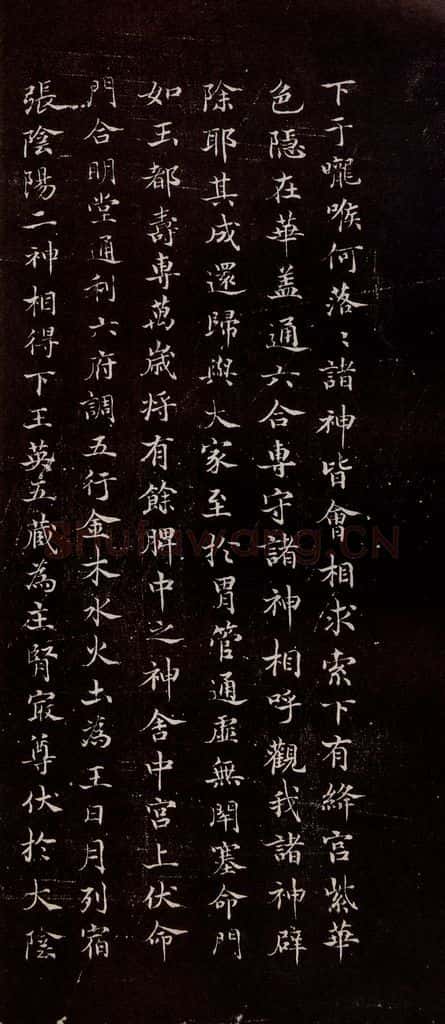 下于嚨喉何落〻諸神皆會相求索下有絳宮紫華
色隱在華盖通六合專守諸神相呼觀我諸神辟
除耶其成還歸與大家至於胃管通虛無閉塞命門
如玉都壽專萬歲将有餘脾中之神舍中宮上伏命
門合明堂通利六府調五行金木水火土為王日月列宿
張陰陽二神相得下玉英五蔵為主腎㝡尊伏於大陰
shufawang.CN